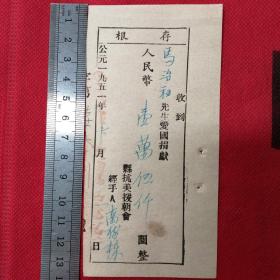 存根
收到
馬治和先生愛國捐獻
人民幣壹萬伍仟圓整
縣抗美援朝會
經手人
公元一九五一年 月 日